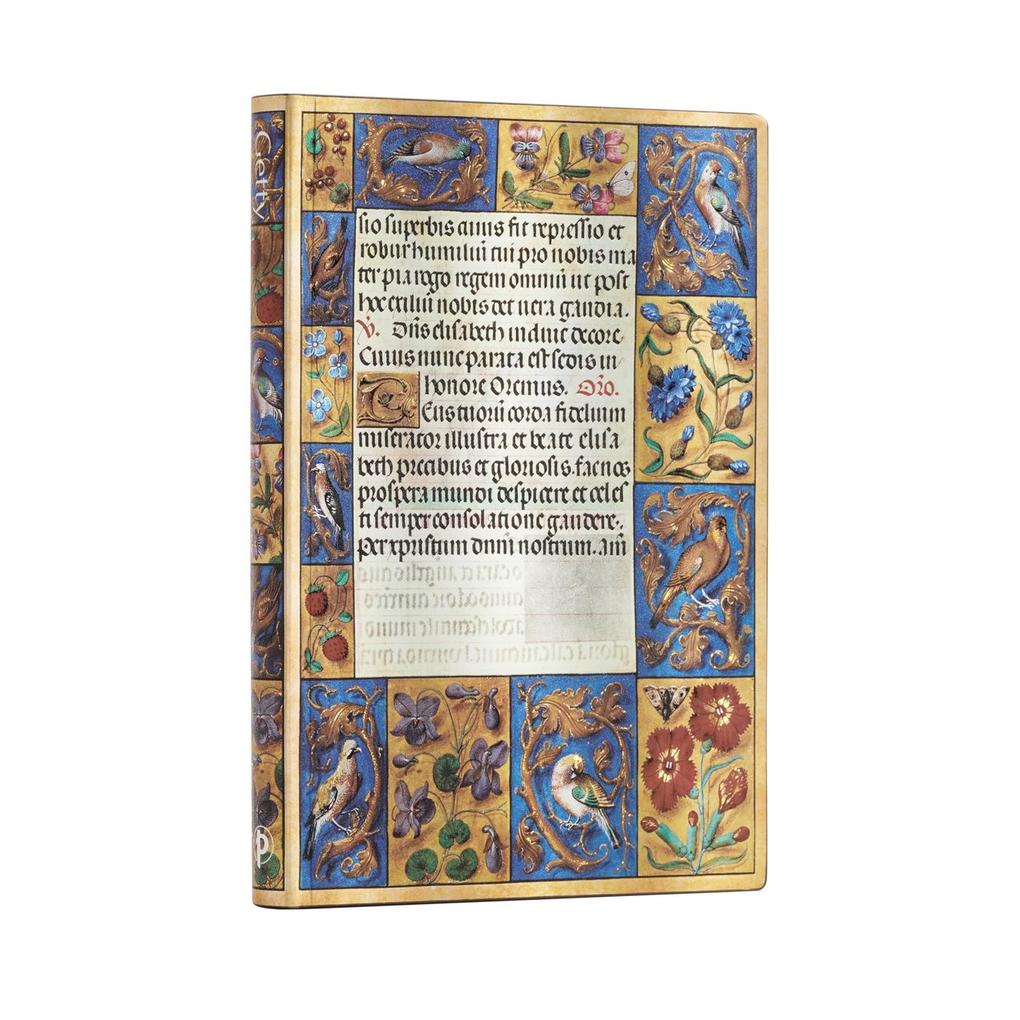 Getty
sio superbis cuius fit repressio et
robur humiliū cui pro nobis ma
ter pia rogo regem omniū ut post
hoc exiliū nobis det uera gaudia.
V. Diis elisabeth induit decore
Cuius nunc parata est sedis in
honore Oremus. Oro.
Deus tuorū corda fidelium
miserator illustra et beate elisa
beth precibus et gloriosis. fac nos
prospera mundi despicere et celes
ti semper consolatione gaudere.
Per xpristum dnm nostrum. am